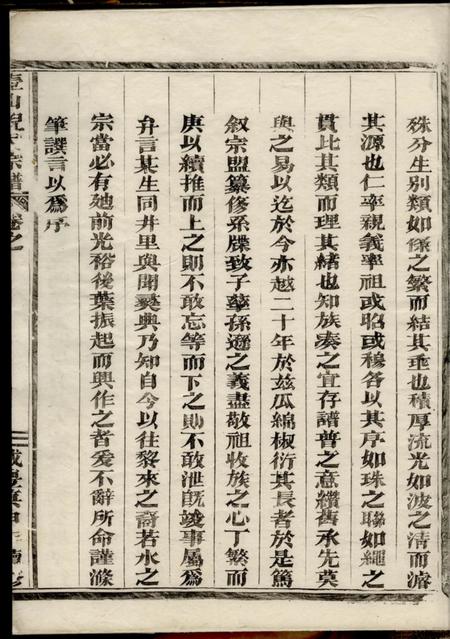 殊分生別類如條之繁而結其垂也積厚流光如波之清而濬
其源也仁率親義率祖或昭或穆各以其序如珠之聯如繩之
貫比其類而理其緒也知族奏之宜存譜普之意纘舊承先莫
與之易以迄於今亦越二十年於玆瓜綿椒衍其長者於是篤
叙宗盟纂修系牒致子孽孫遜之義盡敬祖收族之心丁繁而
庚以續推而上之則不敢忘等而下之則不敢泄旣竣事屬爲
弁言某生同井里與聞義典乃知自今以往黎來之裔若水之
宗當必有廸前光裕後葉振起而興作之者爰不辭所命謹滌
筆譔言以爲序
壺山倪氏宗譜 卷之一
咸豐庚申